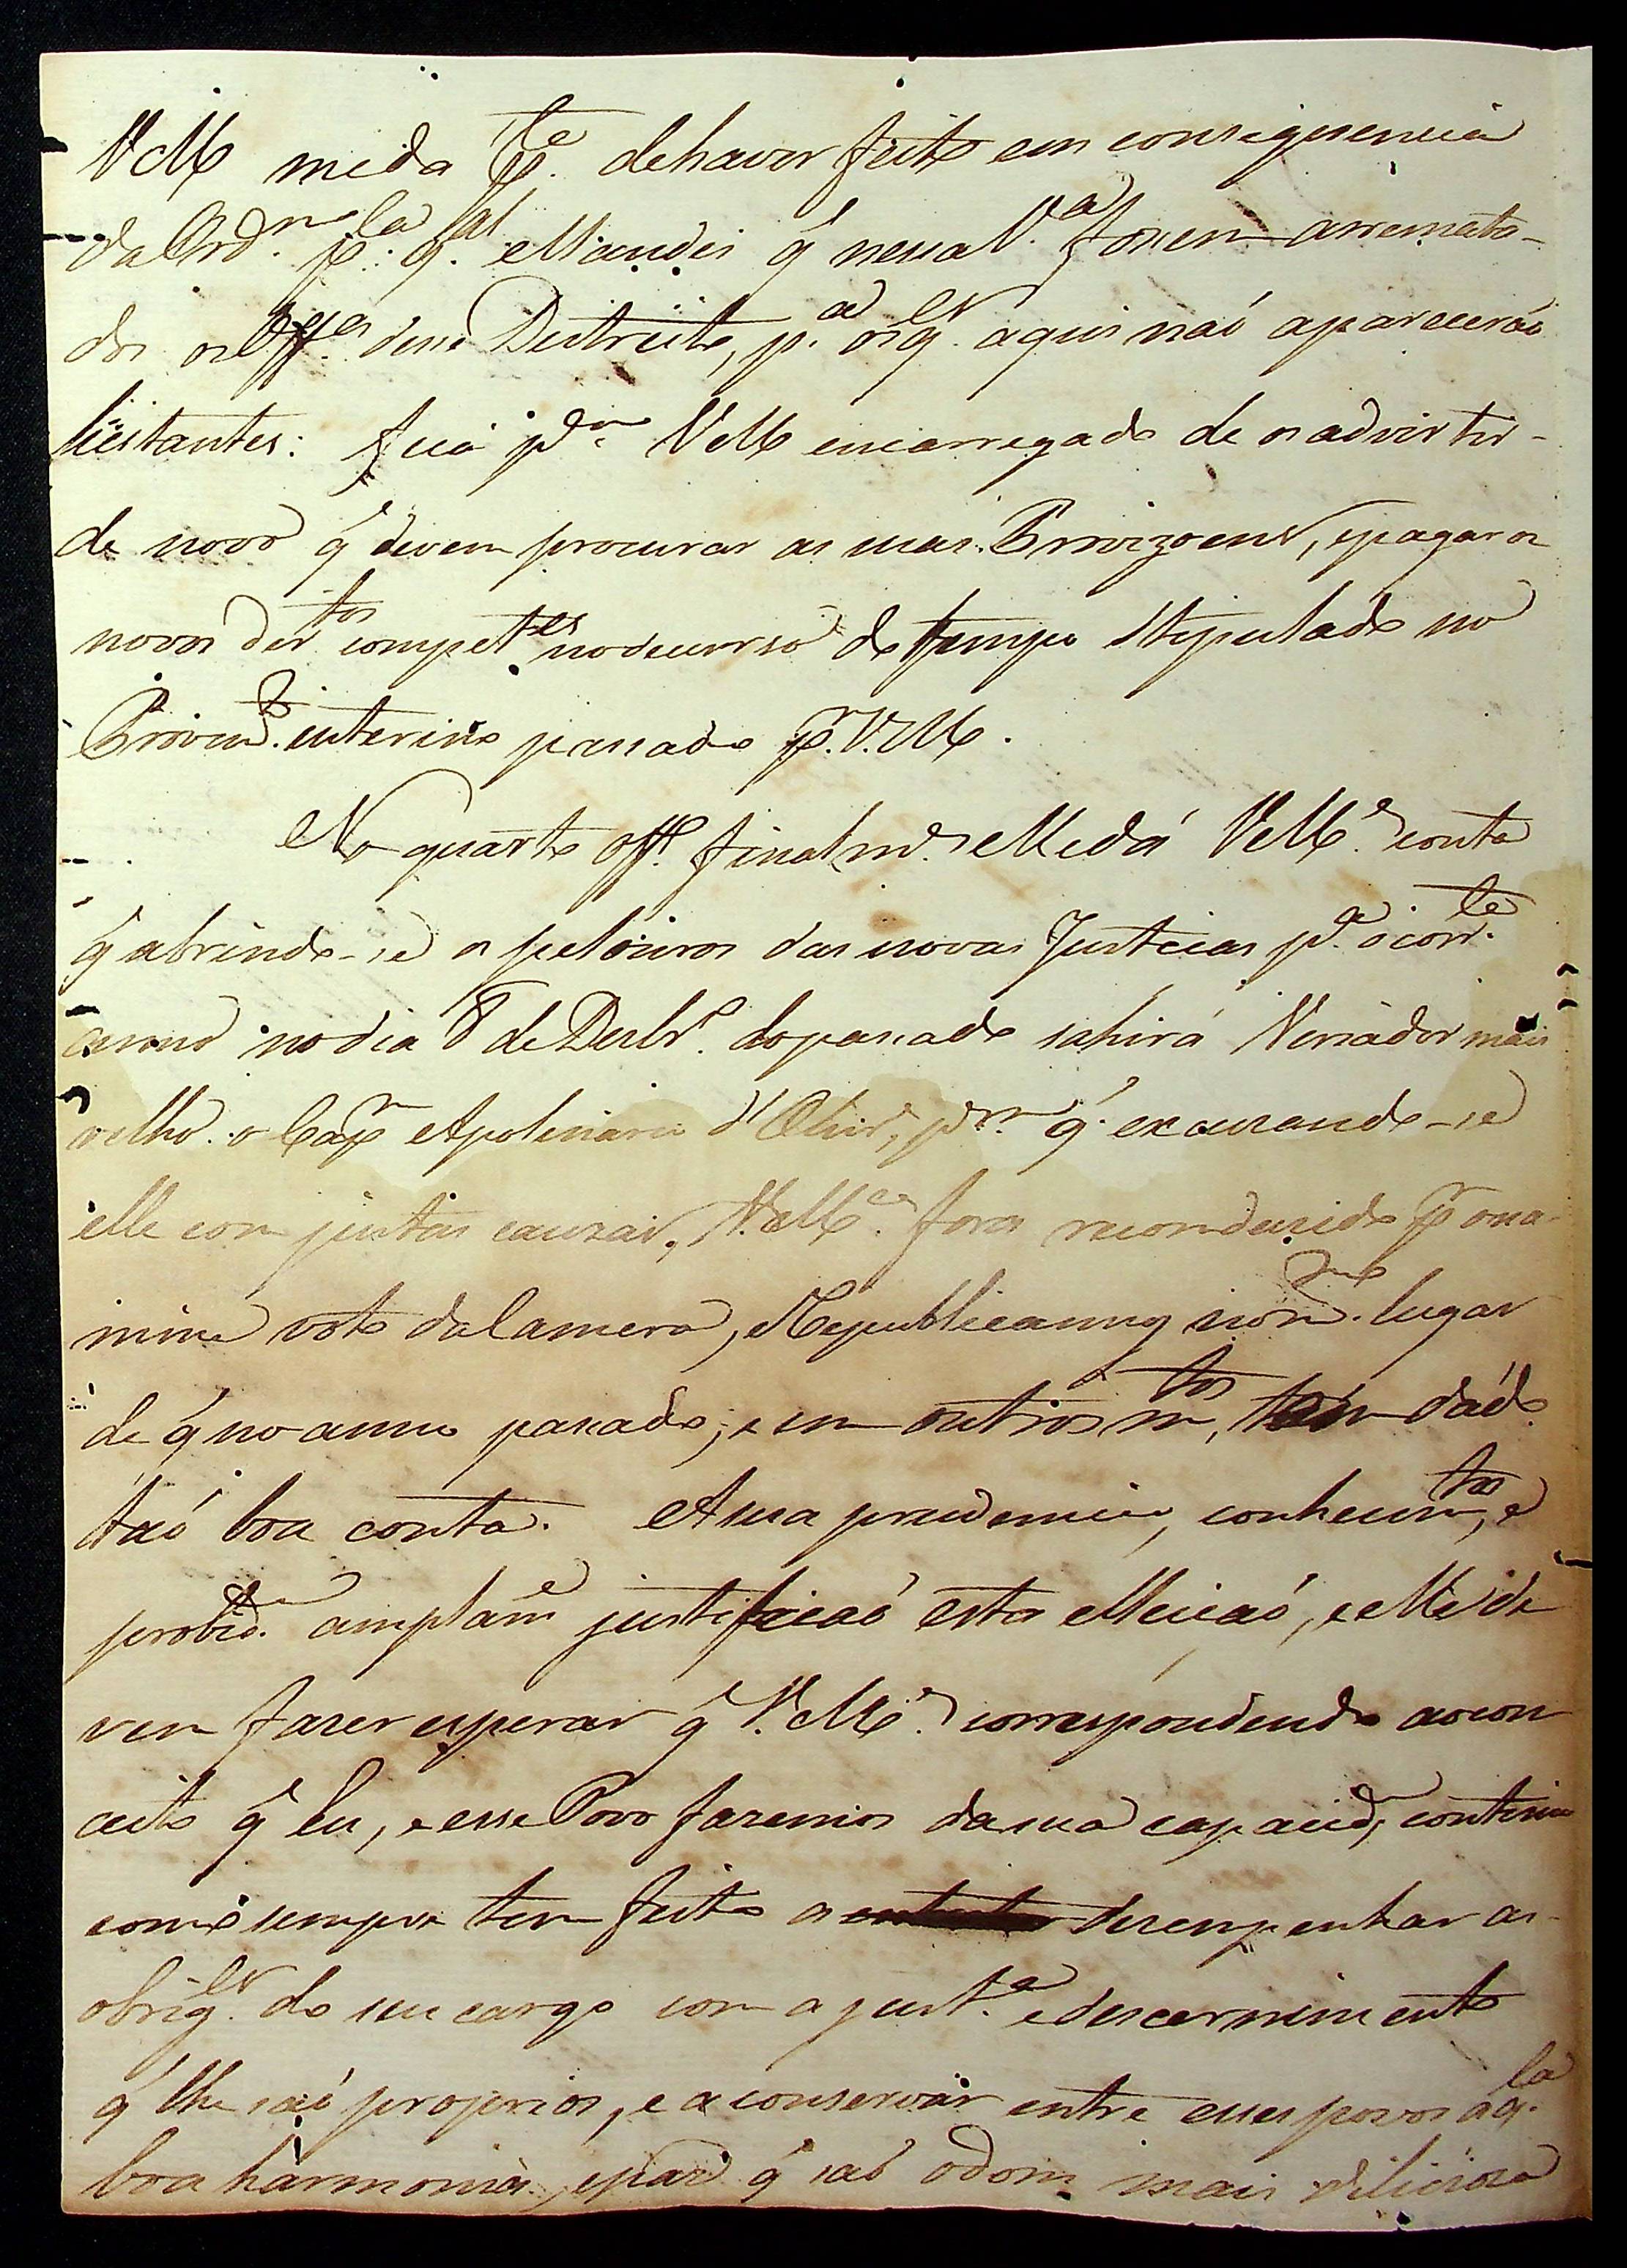 VM me da pte. dehaver feito em consequencia
da Ordm. pla. ql. Mandei q̃ nessa V.a fossem arremata-
dos os Offos. desse Destricto, p.a os qes. aqui naó aparecerão
licitantes: fica pm. VM encarregado de os advirtir
de novo q̃ devem procurar as suas Provizoens, epagar os
novos dirtos. competes. nodecurso do tempo stipulado no
Provim. interino passado pr. V.M.
No quarto offo. finalme. Me dá VMe. conta
q̃ abrindo-se os pelouros das novas Justicas pa. o corrte.
anno no dia 8 de Desbro. dopassado sahirá Veriador mais
velho o Capm Apolinario d'Olivra, pm. q̃ excusando-se
elle com justas causas, VMce. fora reconduzido pr. una-
nime voto daCamera, eRepublicanos no mmo. lugar
de q̃ no anno passado, e em outros mtos, tem dado
taó boa conta. A sua prudencia, conhecimtos, e
probide. amplame justificaó esta elleicaó, e Me de
vem faser esperar q̃ V.Me. correspondendo aocon
ceito q̃ Eu, e esse Povo fasemos dasua capacide, continue
como sempre tem feito a desempenhar as
obrigs. do seu cargo com a justa. ediscernimento
q̃ lhe saó proprios, e a conservar entre esses povos aqla.
boa harmonia, epaz q̃ saó odom mais diliciosa